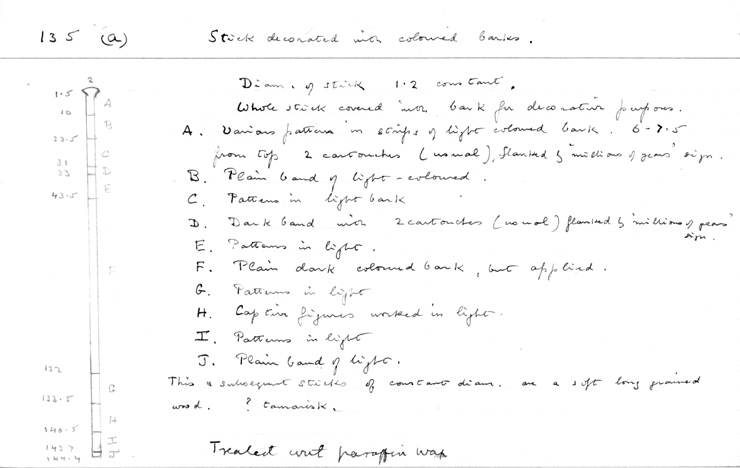 135 (a) Stick decorated with coloured barks.
2
1.5
10
23.5
31
33
43.5
122
133.5
140.5
143.7
144.4
A
B
C
D
E
F
G
H
I
J
Diam. of stick 1.2 constant.
Whole stick covered with bark for decorative purposes.
A. Various patterns in strips of light coloured bark. 6-7.5
from top 2 cartouches (usual), flanked by 'millions of years' sign.
B. Plain band of light-coloured.
C. Patterns in light bark
D. Dark band with 2 cartouches (usual) flanked by 'millions of years'
sign.
E. Patterns in light.
F. Plain dark coloured bark, but applied.
G. Patterns in light
H. Captive figures worked in light.
I. Patterns in light
J. Plain band of light.
This & subsequent sticks of constant diam. are a soft long grained
wood. ? tamarisk.
Treated with paraffin wax